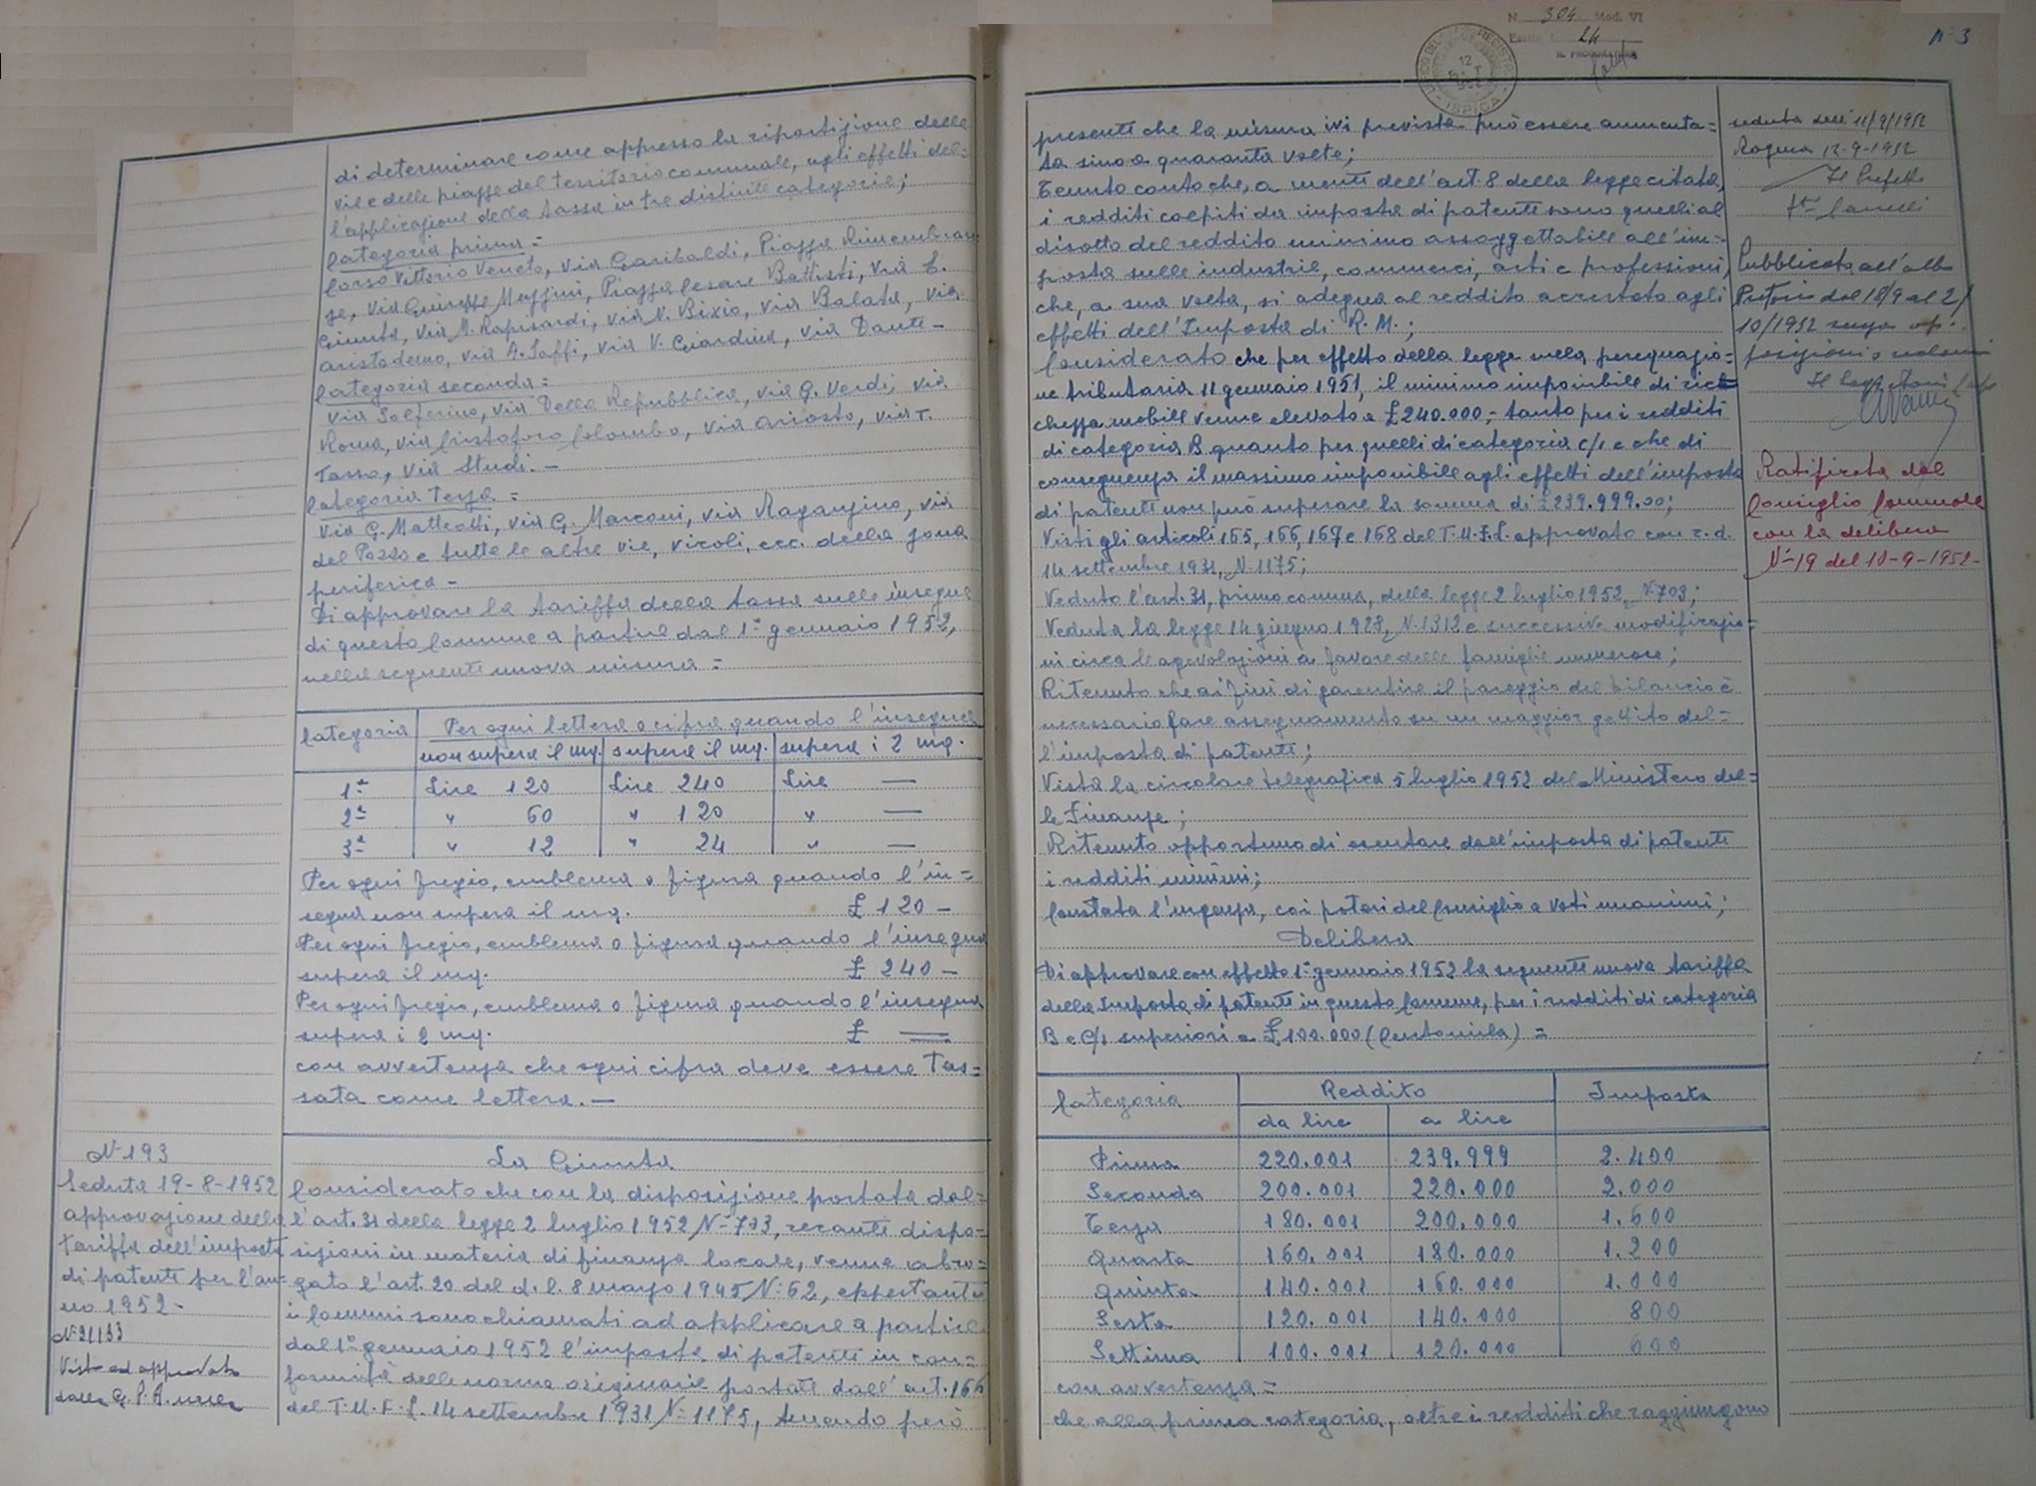 di determinare come appresso la ripartizione delle
vie e delle piazze del territorio comunale, agli effetti del=
l'applicazione della tassa in tre distinte categorie;
Categoria prima =
Corso Vittorio Veneto, Via Garibaldi, Piazza Rimembran=
ze, Via Giuseppe Mazzini, Piazza Cesare Battisti, Via L.
Giunta, Via M. Rapisardi, Via N. Bixio, Via Balata, Via
Aristodemo, Via A. Saffi, Via V. Giardina, Via Dante -
Categoria seconda =
Via Solferino, Via Della Repubblica, Via G. Verdi, Via
Roma, Via Cristoforo Colombo, Via Ariosto, Via T.
Tasso, Via Studi. -
Categoria Terza =
Via G. Matteotti, Via G. Marconi, Via Raganzino, Via
del Pozzo e tutte le altre vie, vicoli, ecc. della zona
periferica -
Di approvare la tariffa della tassa sulle insegne
di questo Comune a partire dal 1° gennaio 1952,
nella seguente nuova misura =
Categoria
Per ogni lettera o cifra quando l'insegna
non supera il mq. supera il mq. supera i 2 mq.
1ª Lire 120 Lire 240 Lire —
2ª " 60 " 120 " —
3ª " 12 " 24 " —
Per ogni fregio, emblema o figura quando l'in=
segna non supera il mq. £ 120 -
Per ogni fregio, emblema o figura quando l'insegna
supera il mq. £ 240 -
Per ogni fregio, emblema o figura quando l'insegna
supera i 2 mq. £ —
con avvertenza che ogni cifra deve essere Tas=
sata come lettera. —
N° 193
Seduta 19-8-1952
approvazione della
tariffa dell'imposta
di patente per l'an=
no 1952 -
N° 21193
Visto ed approvato
dalla G.P.A. nella
La Giunta
Considerato che con la disposizione portata dal=
l'art. 31 della legge 2 luglio 1952 N° 703, recante dispo=
sizioni in materia di finanza locale, venne abro=
gato l'art. 20 del d.l. 8 marzo 1945 N° 62, eppertanto
i Comuni sono chiamati ad applicare a partire
dal 1° gennaio 1952 l'imposta di patente in con=
formità delle norme originarie portate dall'art. 166
del T.U.F.L. 14 settembre 1931 N° 1175, tenendo però
N. 304 Mod. VI
24
IL PROCURATORE
UFFICIO DEL REGISTRO
12
ISPICA
N° 3
presente che la misura ivi prevista può essere aumenta=
ta sino a quaranta volte;
Tenuto conto che, a mente dell'art. 8 della legge citata,
i redditi colpiti da imposta di patente sono quelli al
disotto del reddito minimo assoggettabile all'im=
posta sulle industrie, commerci, arti e professioni,
che, a sua volta, si adegua al reddito accertato agli
effetti dell'Imposta di R.M.;
Considerato che per effetto della legge nella perequazio=
ne tributaria 11 gennaio 1951, il minimo imponibile di ric=
chezza mobile venne elevato a £ 240.000,= tanto per i redditi
di categoria B quanto per quelli di categoria C/1 e che di
conseguenza il massimo imponibile agli effetti dell'imposta
di patente non può superare la somma di £ 239.999.00;
Visti gli articoli 165, 166, 167 e 168 del T.U.F.L. approvato con r.d.
14 settembre 1931, N° 1175;
Veduto l'art. 31, primo comma, della legge 2 luglio 1952, N° 703;
Veduta la legge 14 giugno 1928, N. 1312 e successive modificazio=
ni circa le agevolazioni a favore delle famiglie numerose;
Ritenuto che ai fini di garantire il pareggio del bilancio è
necessario fare assegnamento su un maggior gettito del=
l'imposta di patente;
Vista la circolare telegrafica 5 luglio 1952 del Ministero del=
le Finanze;
Ritenuto opportuno di esentare dall'imposta di patente
i redditi minimi;
Constatata l'urgenza, coi poteri del Consiglio a voti unanimi;
Delibera
Di approvare con effetto 1° gennaio 1952 la seguente nuova tariffa
della Imposta di patente in questo Comune, per i redditi di categoria
B e C/1 superiori a £ 100.000 (Centomila) =
Categoria Reddito Imposta
da lire a lire
Prima 220.001 239.999 2.400
Seconda 200.001 220.000 2.000
Terza 180.001 200.000 1.600
Quarta 160.001 180.000 1.200
Quinta 140.001 160.000 1.000
Sesta 120.001 140.000 800
Settima 100.001 120.000 600
con avvertenza =
che alla prima categoria, oltre i redditi che raggiungono
seduta dell'11/9/1952
Ragusa 12-9-1952
Il Prefetto
Pubblicata all'albo
Pretorio dal 18/9 al 2/
10/1952 senza op=
posizioni o reclami
Ratificata dal
Consiglio Comunale
con la delibera
N° 19 del 10-9-1952 -